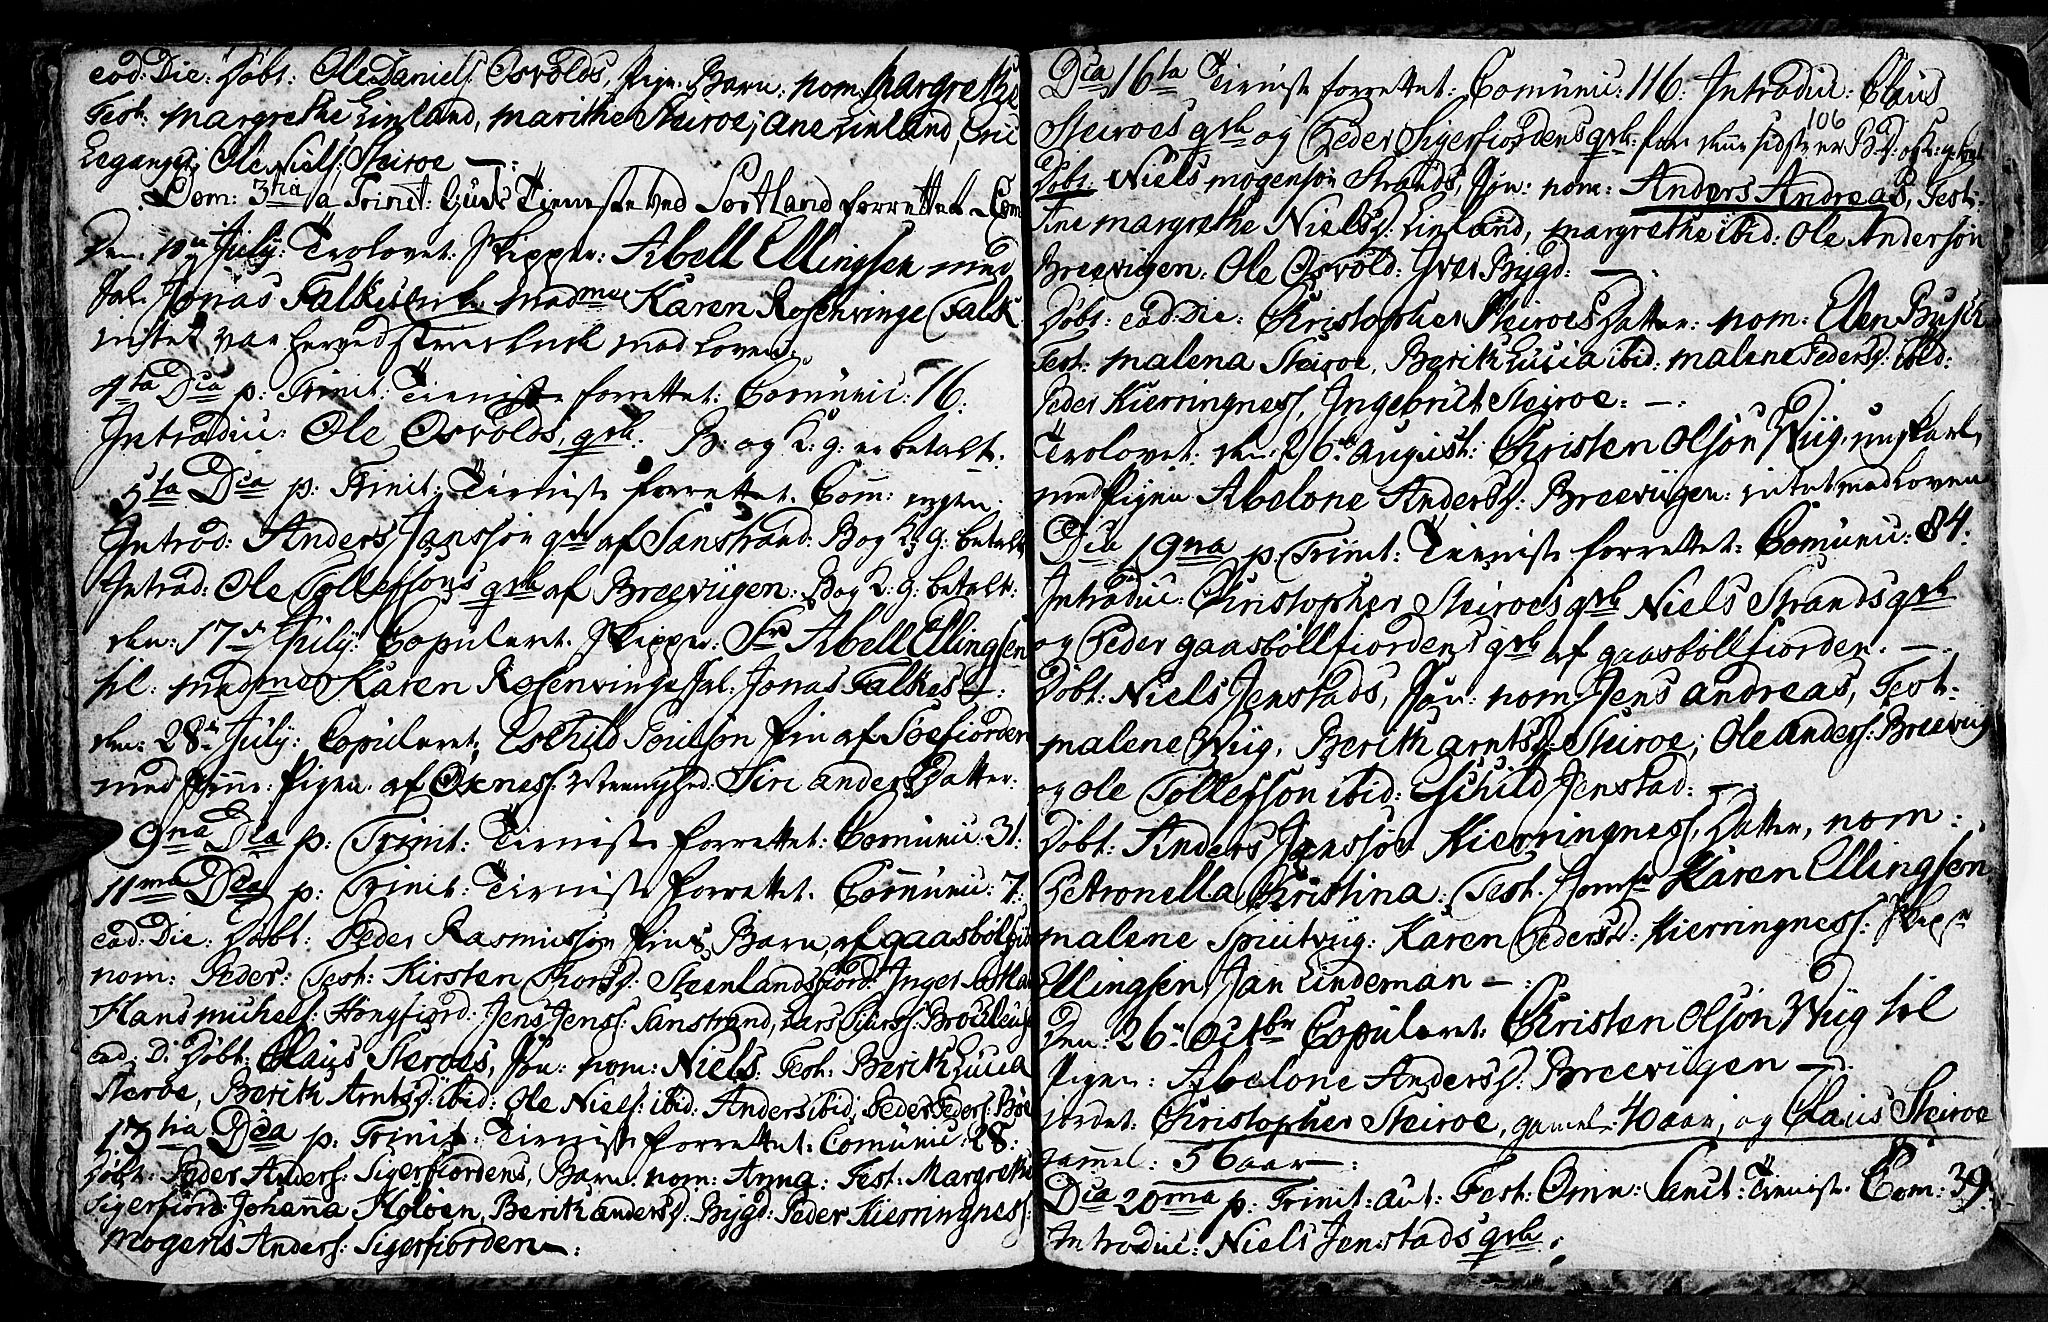 eod: Die: Döbt: Ole Daniels: Osvolds, Pige Barn: nom: Margrethe
Test: Margrethe Linland, Marithe Steiroe; Ane Linland, Eric
Leganger, Ole Niels: Steiroe —:
Dom: 3tia a Trinit: Guds Tieneste ved Sortland forrettet Com
den July: Trolovet: Skipper: Abell Ellingsen med
Sal. Jonas Falkes Enke Madme Karen Rosenvinge Falk
intet var herved med Loven
4ta Dca p: Trinit: Tieniste forrettet: Comunic: 76.
Introduc: Ole Osvolds, qvh. B: og K: g: er betalt.
5ta Dca p: Trinit: Tieniste forrettet. Com: ingen.
Introd: Anders Jansson qvh af Sanstrand: B og K: g: betalt
Introd: Ole Tollefsons qvh af Breeviigen: B og K: g: betalt:
den: 17de July: Copuleret. Skipper: Sr Abell Ellingsen
til: Madme Karen Rosenvinge Sal: Jonas Falkes —:
den: 28de July: Copuleret, Eschild Poulson Fin af Soefiorden
med Pigen af Oxness Siri Anders Datter:
9na Dca p: Trinit: Tieniste forrettet: Comunic: 31.
11ma Dca p: Trinit: Tieniste forrettet. Comunic: 7.
ead: Die: Döbt: Peder Rasmusson Fins Barn, af Gaasbölfior
nom: Peder: Test: Kirsten Thorsd: Steenlandsfiord: Inger
Hans Michels: Hongfiord: Jens Jenss: Sanstrand, Lars Siurss:
ead: D: Döbt: Claus Steroes, Sön: nom: Niels: Test: Berith Lucia
Steroe, Berith Arntsd: ibid: Ole Niels: ibid: Anders ibid, Peder Peders:
13tia Dca p: Trinit: Tieniste forrettet: Comunic: 28:
Döbt: Peder Anders: Sigerfiordens, Barn: nom: Anna: Test: Margrethe
Sigerfiord Johanna Holoen, Berith Andersd: Bygd: Peder Kierringness:
Mogens Anders: Sigerfiorden —:
Dca 16ta Tieniste forrettet: Comunic: 116: Introduc: Claus
106
Steiroes qvh og Peder Sigerfiordens qvh: for denne sidste er B: og K: g: betalt
Döbt: Niels Mogensön Strands, Sön: nom: Anders Andreas, Test:
Ane Margrethe Nielsd: Linland, Margrethe ibid: Ole Anderson
Breevigen: Ole Osvold: Iver Bygd: —:
Döbt: ead: Die: Christopher Steiroes Datter: nom: Ellen Busch
Test: Malena Steiroe, Berith Lucia ibid: Malene Pedersd: ibid:
Peder Kierringness, Ingebrict Steiroe: —:
Trolovet: den 26de August: Christen Olson Wiig, ung Karl,
med Pigen Abelone Andersd: Breeviigen: intet mod Loven
Dca 19na p: Trinit: Tieniste forrettet: Comunic: 84:
Introduc: Christopher Steiroes qvh Niels Strands qvh
og Peder Gaasböllfiordens qvh af Gaasböllfiorden. —.
Döbt: Niels Jenstads, Sön: nom: Jens Andreas, Test:
Malene Wiig, Berith Arntsd: Steiroe, Ole Anders: Breeviig
og Ole Tollefson ibid: Eschild Jenstad: —.
Döbt: Anders Jansson Kierringness, Datter, nom:
Petronella Christina: Test: Jomfr Karen Ellingsen
Malene Spiutviig: Karen Pedersd: Kierringness: Skiper
Ellingsen, Jan Lindeman —:
Den: 26de Octbr Copuleret: Christen Olson Wiig til
Pigen: Abelone Andersd: Breeviigen —:
jordet: Christopher Steiroe, gamel: 40 aar, og Claus Steiroe
gammel: 56 aar —:
Dca 20ma p: Trinit: aut: Fest: Omn: Sanct: Tieniste. Com: 39.
Introduc: Niels Jenstads qvh: